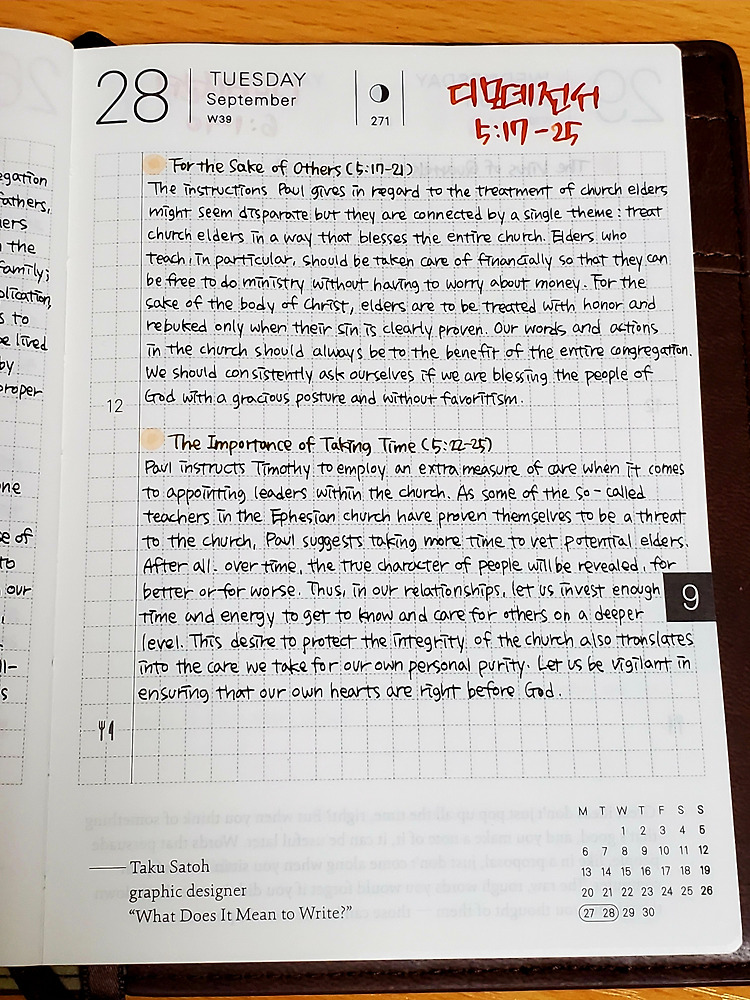 28
TUESDAY
September
W39
271
디모데전서
5:17-25
For the Sake of Others (5:17-21)
The instructions Paul gives in regard to the treatment of church elders
might seem disparate but they are connected by a single theme: treat
church elders in a way that blesses the entire church. Elders who
teach, in particular, should be taken care of financially so that they can
be free to do ministry without having to worry about money. For the
sake of the body of Christ, elders are to be treated with honor and
rebuked only when their sin is clearly proven. Our words and actions
in the church should always be to the benefit of the entire congregation.
We should consistently ask ourselves if we are blessing the people of
God with a gracious posture and without favoritism.
12
The Importance of Taking Time (5:22-25)
Paul instructs Timothy to employ an extra measure of care when it comes
to appointing leaders within the church. As some of the so-called
teachers in the Ephesian church have proven themselves to be a threat
to the church, Paul suggests taking more time to vet potential elders.
After all, over time, the true character of people will be revealed, for
better or for worse. Thus, in our relationships, let us invest enough
time and energy to get to know and care for others on a deeper
level. This desire to protect the integrity of the church also translates
into the care we take for our own personal purity. Let us be vigilant in
ensuring that our own hearts are right before God.
9
egation
fathers,
the
family;
plication,
s to
be lived
by
proper
one
se of
to
our
ll-
s
M T W T F S S
1 2 3 4 5
6 7 8 9 10 11 12
13 14 15 16 17 18 19
20 21 22 23 24 25 26
27 28 29 30
—— Taku Satoh
graphic designer
“What Does It Mean to Write?”